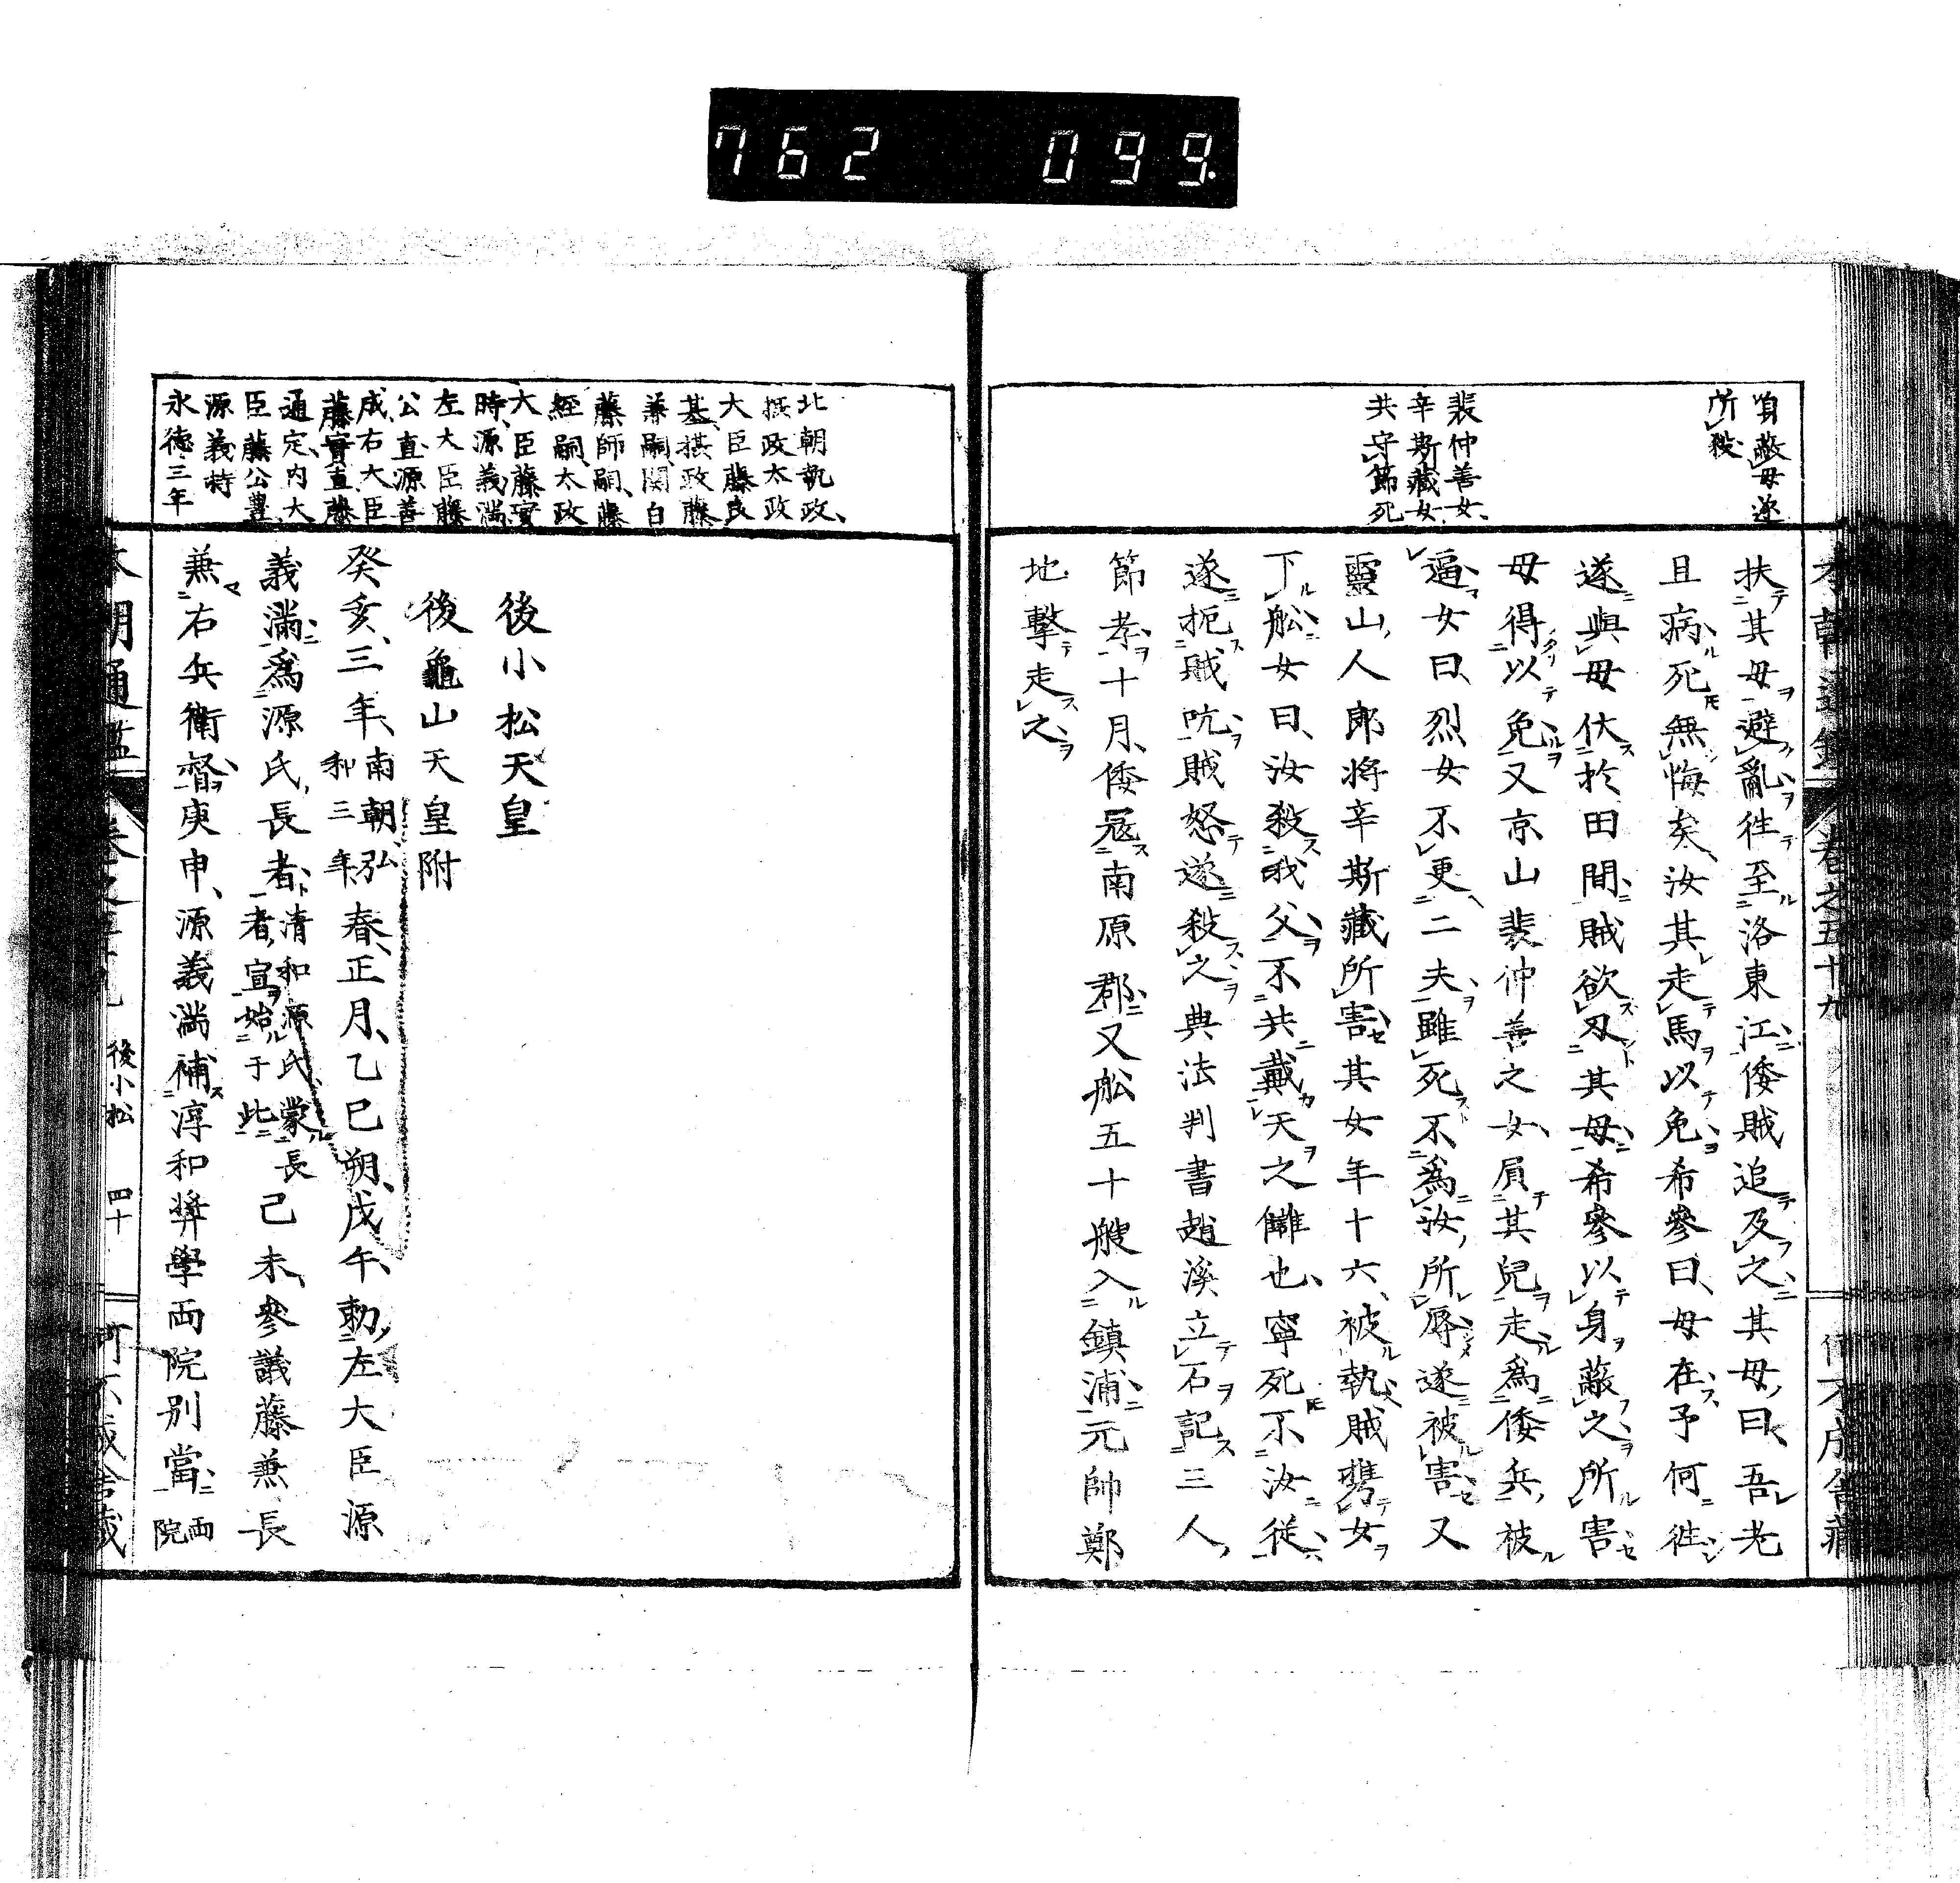 762 099.
身蔽母遂
所殺
裴仲善女、
辛斯藏女、
共守節死
扶其母避亂徃至洛東江倭賊追及之其母曰吾老
且病死無悔矣汝其走馬以免希參曰母在予何徃
遂與母伏於田間賊欲刃其母希參以身蔽之所害
母得以免又京山裴仲善之女負其兒走為倭兵被
逼女曰烈女不更二夫雖死不為汝所辱遂被害又
靈山人郎将辛斯藏所害其女年十六被執賊携女
下舩女曰汝殺我父不共戴天之讎也寧死不汝従
遂扼賊吭賊怒遂殺之典法判書趙溪立石記三人
節孝十月倭冦南原郡又舩五十艘入鎮浦元帥鄭
地擊走之
卷之五十九
北朝執政、
摂政太政
大臣藤良
基、摂政藤
兼嗣、関白
藤師嗣、藤
經嗣、太政
大臣藤實
時、源義満
左大臣藤
公直、源善
成、右大臣
藤實直、藤
通定、内大
臣藤公豊
源義持
永徳三年
後小松天皇
後龜山天皇附
癸亥、三年、南朝、弘和三年、春、正月、乙巳朔、戊午、勅左大臣源
義満為源氏長者、清和源氏蒙長者宣始于此己未、參議藤兼長
兼右兵衛督庚申、源義満補淳和弉學両院別當両院
本朝通鑑
後小松
四十